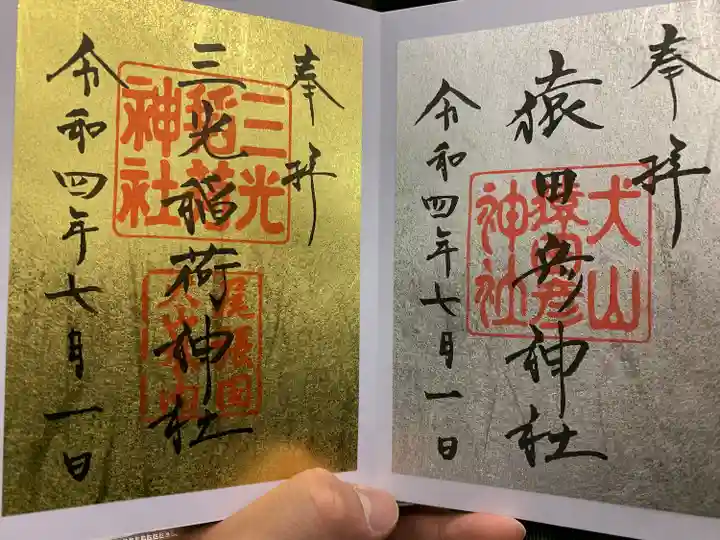 奉拝
猿田彦神社
犬山
猿田彦
神社
令和四年七月一日
奉拝
三光稲荷神社
三光
稲荷
神社
尾張国
犬山
令和四年七月一日